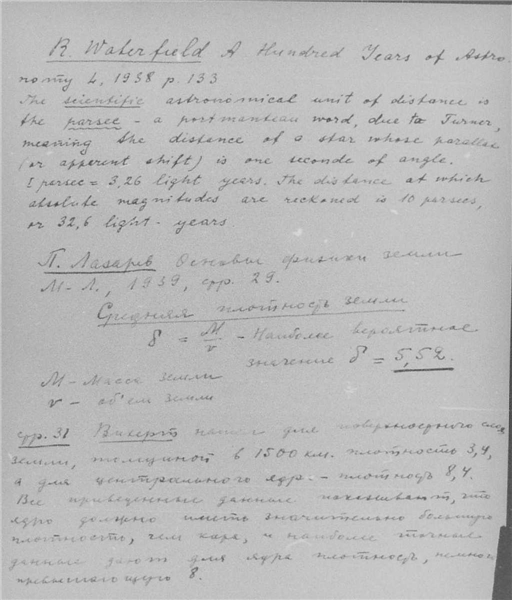 R. Waterfield A Hundred Years of Astro-
nomy L, 1938 p. 133
The scientific astronomical unit of distance is
the parsec - a portmanteau word, due to Turner,
meaning the distance of a star whose parallax
(or apperent shift) is one seconde of angle.
1 parsec = 3,26 light years. The distance at which
absolute magnitudes are reckoned is 10 parsecs,
or 32,6 light - years
П. Лазарев Основы физики земли
М-Л., 1939, стр. 29.
Средняя плотность земли
δ = M/v - Наиболее вероятное
значение δ = 5,52.
M - Масса земли
v - об'ем земли
стр. 31 Вихерт нашел для поверхностного слоя
земли, толщиной в 1500 км. плотность 3,4,
а для центрального ядр. - плотность 8,4.
Все приведенные данные показывают, что
ядро должно иметь значительно большую
плотность, чем кора, и наиболее точные
данные дают для ядра плотность, немного
превышающую 8.